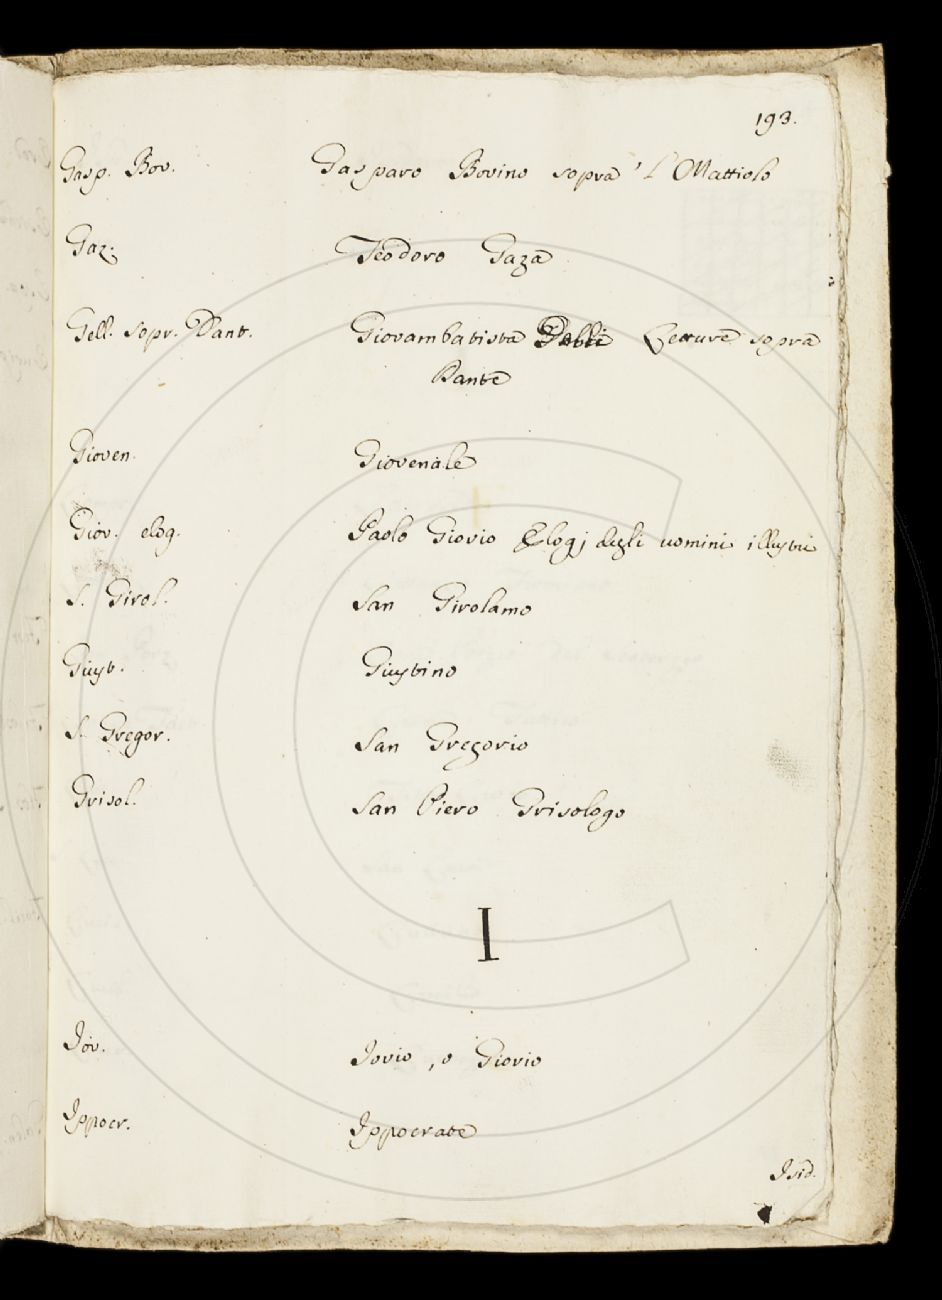 193.
Gasp. Bov. Gasparo Bovino sopra 'l Mattiolo
Gaz. Teodoro Gaza
Gell. sopr. Dant. Giovambatista Letture sopra
Dante
Gioven. Giovenale
Giov. elog. Paolo Giovio Elogj degli uomini illustri
S. Girol. San Girolamo
Giust. Giustino
S. Gregor. San Gregorio
Grisol. San Piero Grisologo
I
Jov. Jovio, o Giovio
Ippocr. Ippocrate
Isid.